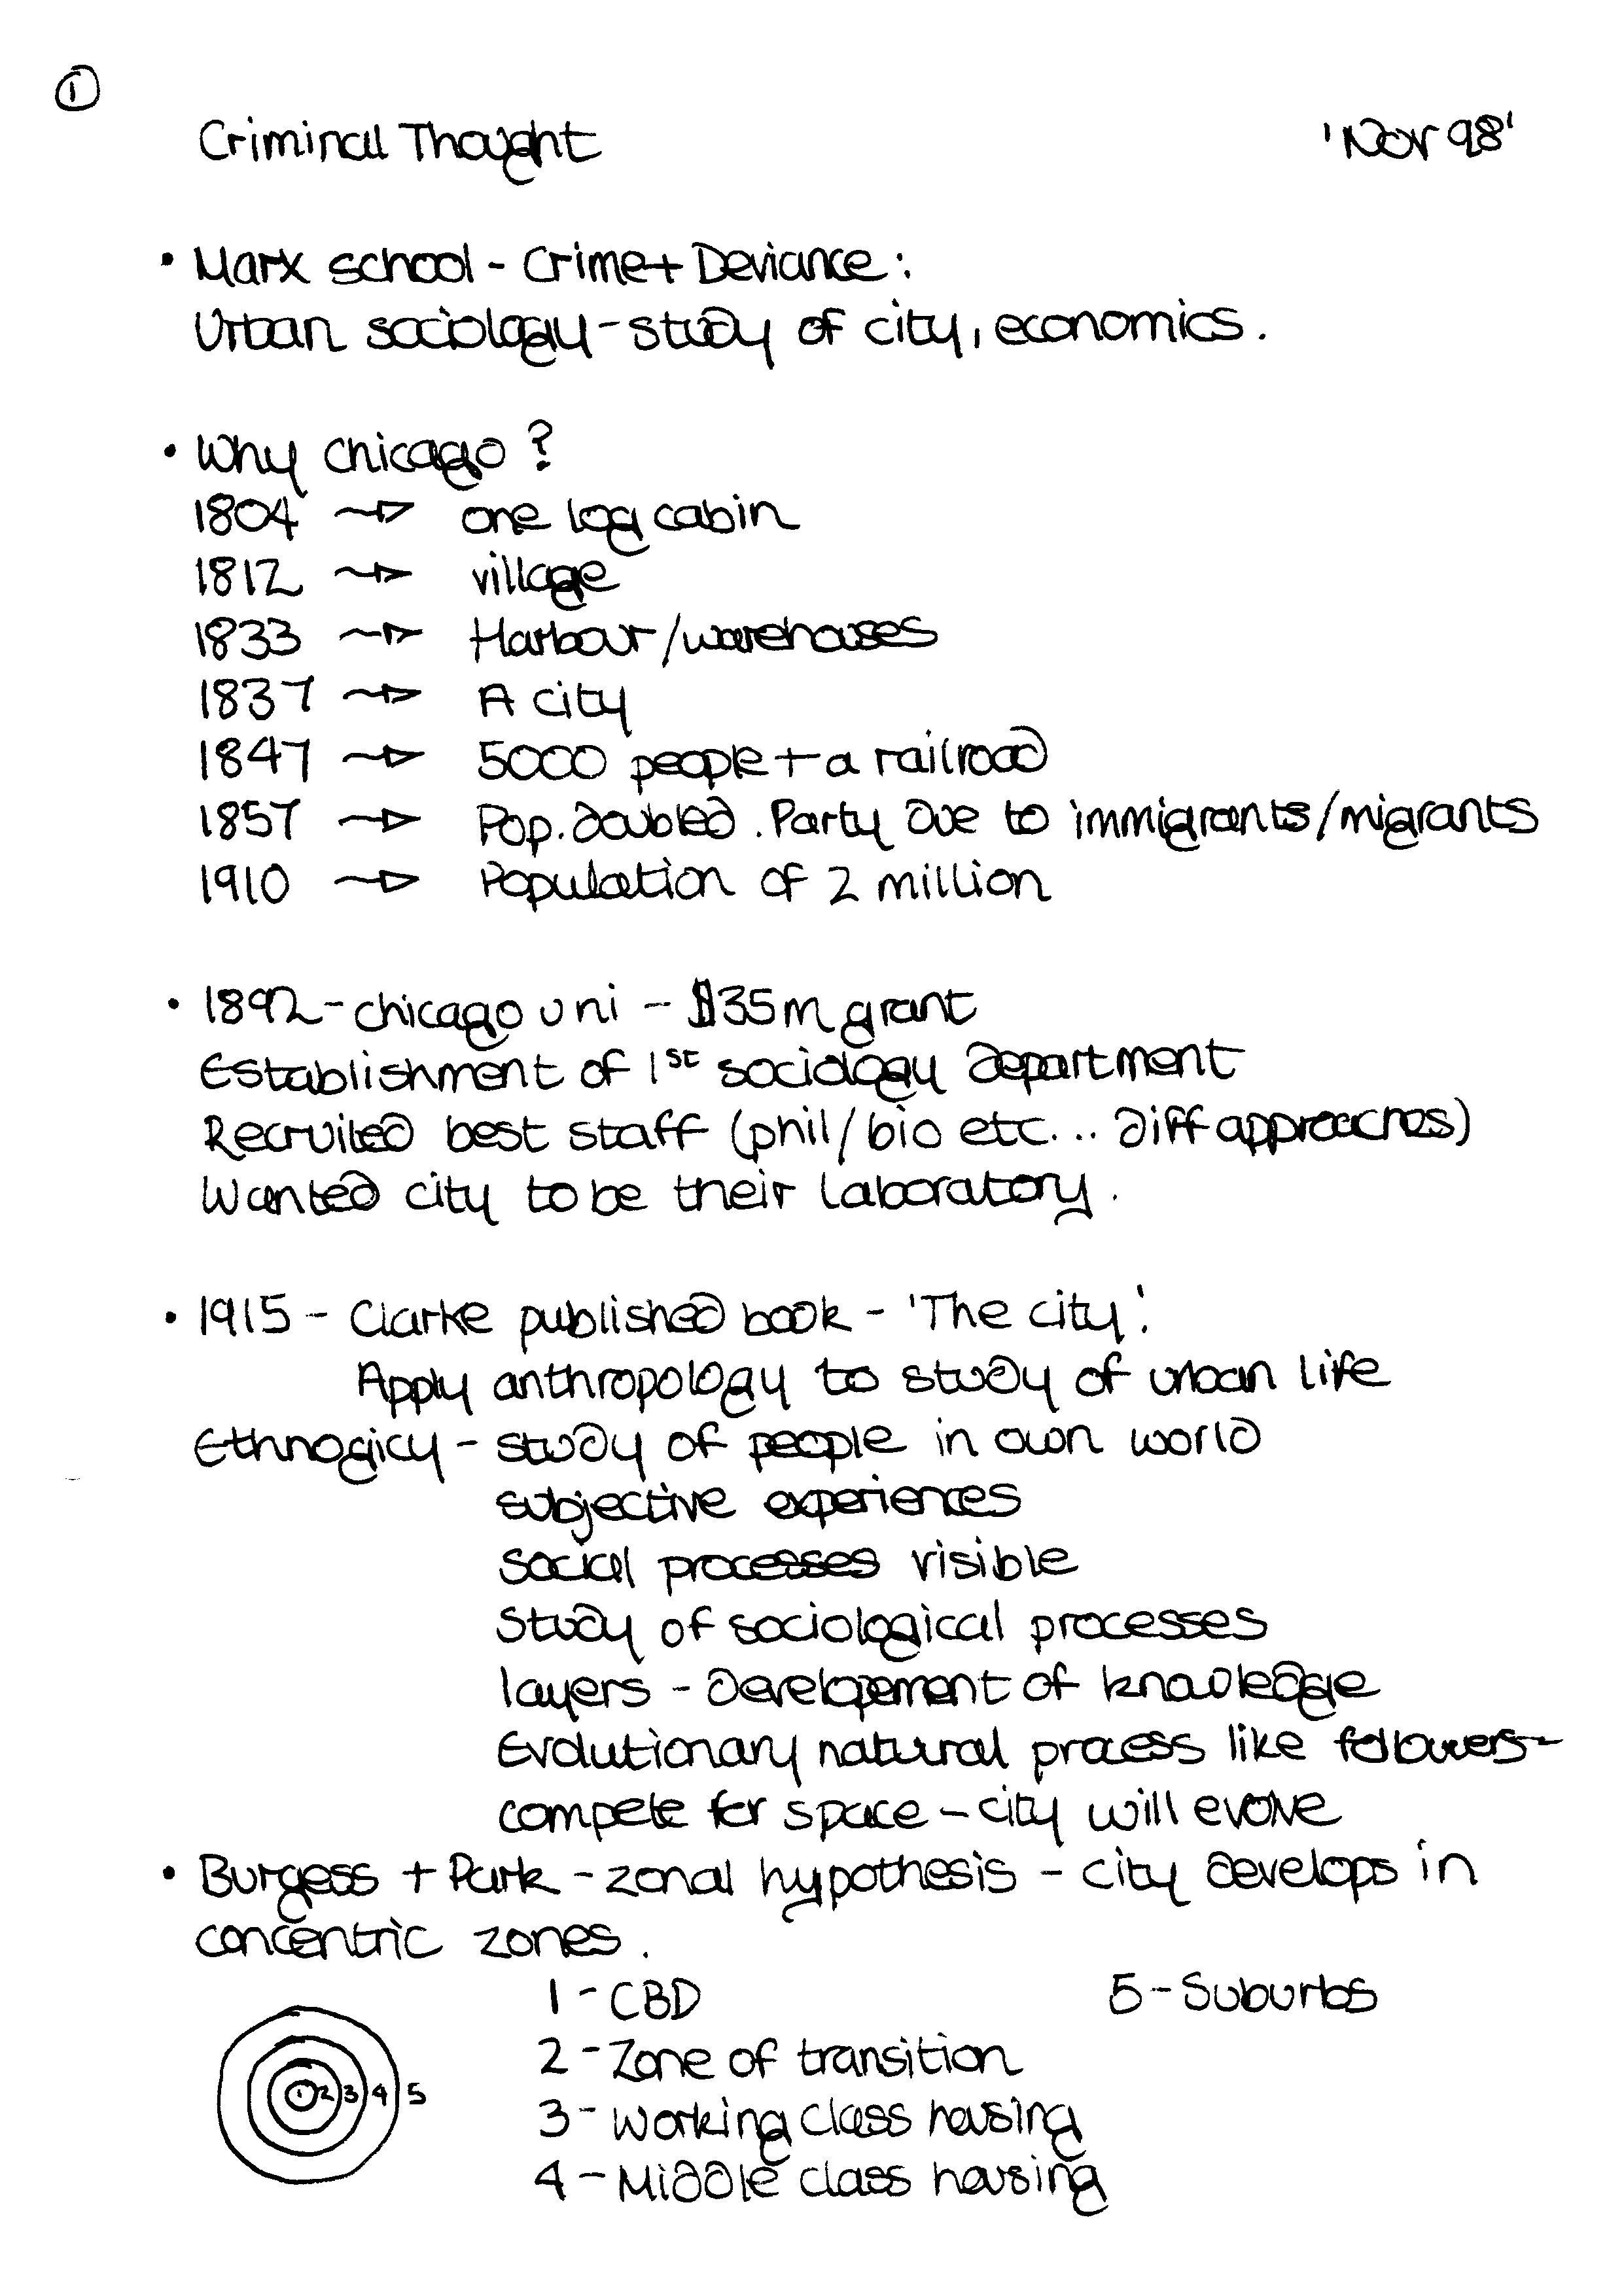 ①
Criminal Thought 'Nov 98'
• Marx school - Crime + Deviance :
Urban sociology - study of city, economics.
• Why chicago ?
1804 → one log cabin
1812 → village
1833 → Harbour/warehouses
1837 → A city
1847 → 5000 people + a railroad
1857 → Pop. doubled. Party due to immigrants/migrants
1910 → Population of 2 million
• 1892 - chicago uni - $35m grant
Establishment of 1st sociology department
Recruited best staff (phil/bio etc... diff approaches)
Wanted city to be their laboratory.
• 1915 - Clarke published book - 'The city'.
Apply anthropology to study of urban life
Ethnogicy - study of people in own world
subjective experiences
social processes visible
Study of sociological processes
layers - development of knowledge
Evolutionary natural process like followers -
compete for space - city will evolve
• Burgess + Park - zonal hypothesis - city develops in
concentric zones.
1 - CBD 5 - Suburbs
2 - Zone of transition
1 2 3 4 5
3 - Working class housing
4 - Middle class housing